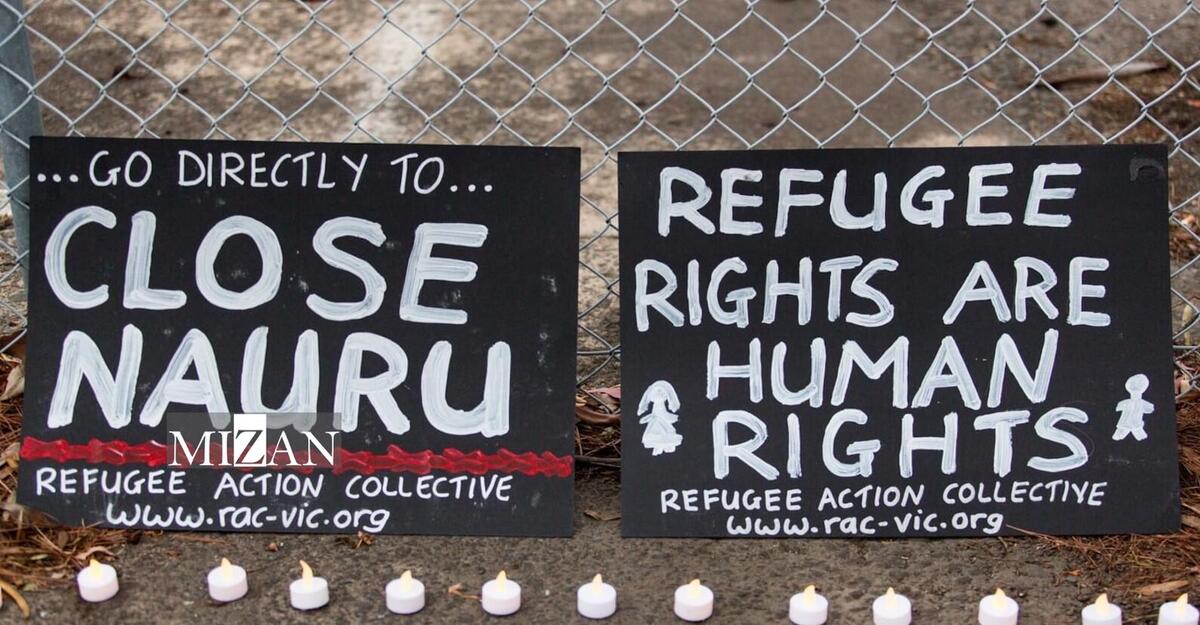 ...GO DIRECTLY TO...
CLOSE
NAURU
MIZAN
REFUGEE ACTION COLLECTIVE
www.rac-vic.org
REFUGEE
RIGHTS ARE
HUMAN
RIGHTS
REFUGEE ACTION COLLECTIVE
www.rac-vic.org